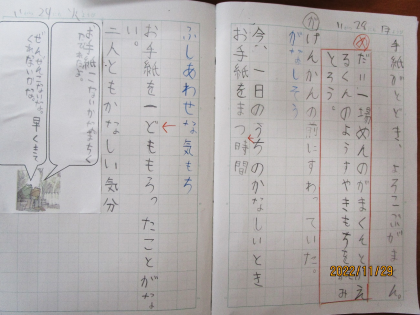 11.29.火
手紙がとどき、よろこぶがまくん。
め
だい一場めんのがまくんとかえ
るくんのようすや気もちをよみ
とろう。
か
げんかんの前にすわっていた。
かなしそう
今、一日のうちのかなしいとき
お手紙をまつ時間
2022/11/29
ふしあわせな気もち
お手紙を一どももらったことがな
い。
二人ともかなしい気分
お手紙
早くもって